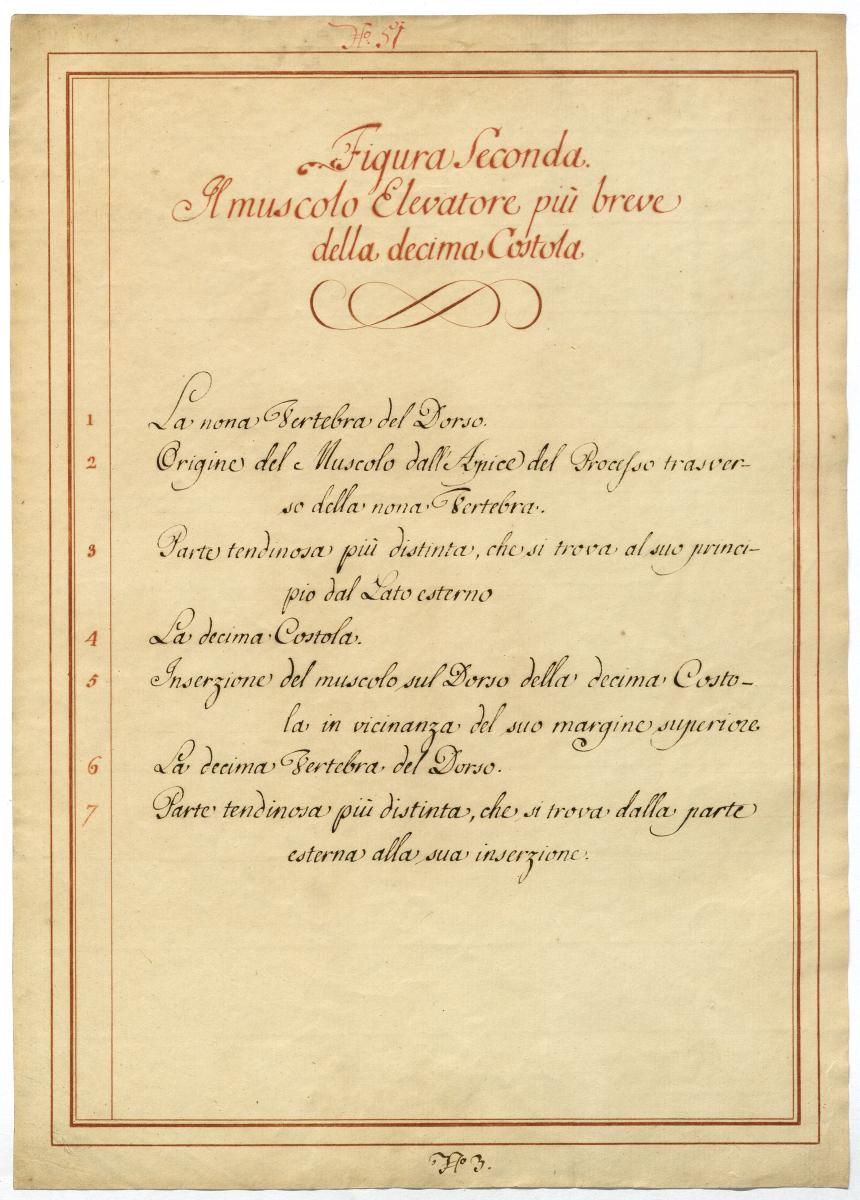 No. 51
Figura Seconda.
Il muscolo Elevatore più breve
della decima Costola
1 La nona Vertebra del Dorso.
2 Origine del Muscolo dall'Apice del Processo trasver-
so della nona Vertebra.
3 Parte tendinosa più distinta, che si trova al suo princi-
pio dal Lato esterno
4 La decima Costola.
5 Inserzione del muscolo sul Dorso della decima Costo-
la in vicinanza del suo margine superiore
6 La decima Vertebra del Dorso.
7 Parte tendinosa più distinta, che si trova dalla parte
esterna alla sua inserzione.
No. 3.